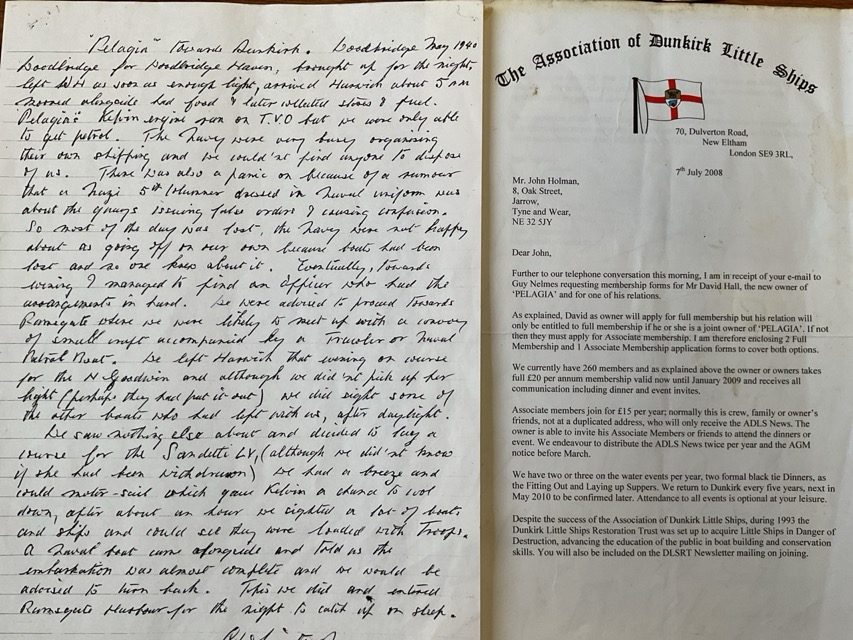 "Pelagia" Towards Dunkirk. Woodbridge May 1940
Woodbridge for Woodbridge Haven, brought up for the night,
left WH as soon as enough light, arrived Harwich about 5 am
moored alongside had food & later collected stores & fuel.
"Pelagia's" Kelvin engine ran on T.V.O but we were only able
to get petrol. The Navy were very busy organising
their own shipping and we could'nt find anyone to dispose
of us. There was also a panic on because of a rumour
that a Nazi 5th Columner dressed in Naval uniform was
about the quays issuing false orders & causing confusion.
So most of the day was lost, the Navy were not happy
about us going off on our own because boats had been
lost and no one knew about it. Eventually, towards
evening I managed to find an Officer who had the
arrangements in hand. We were advised to proceed towards
Ramsgate where we were likely to meet up with a convoy
of small craft accompanied by a Trawler or Naval
Patrol Boat. We left Harwich that evening on course
for the N Goodwin and although we did'nt pick up her
light (perhaps they had put it out) we did sight some of
the other boats who had left with us, after daylight.
We saw nothing else about and decided to lay a
course for the Sandettie LV, (although we did'nt know
if she had been withdrawn) We had a breeze and
could motor-sail which gave Kelvin a chance to cool
down, after about an hour we sighted a lot of boats
and ships and could see they were loaded with Troops.
A Naval boat came alongside and told us the
embarkation was almost complete and we would be
advised to turn back. This we did and entered
Ramsgate Harbour for the night to catch up on sleep.
The Association of Dunkirk Little Ships
70, Dulverton Road,
New Eltham
London SE9 3RL,
7th July 2008
Mr. John Holman,
8, Oak Street,
Jarrow,
Tyne and Wear,
NE 32 5JY
Dear John,
Further to our telephone conversation this morning, I am in receipt of your e-mail to
Guy Nelmes requesting membership forms for Mr David Hall, the new owner of
'PELAGIA' and for one of his relations.
As explained, David as owner will apply for full membership but his relation will
only be entitled to full membership if he or she is a joint owner of 'PELAGIA'. If not
then they must apply for Associate membership. I am therefore enclosing 2 Full
Membership and 1 Associate Membership application forms to cover both options.
We currently have 260 members and as explained above the owner or owners takes
full £20 per annum membership valid now until January 2009 and receives all
communication including dinner and event invites.
Associate members join for £15 per year; normally this is crew, family or owner's
friends, not at a duplicated address, who will only receive the ADLS News. The
owner is able to invite his Associate Members or friends to attend the dinners or
event. We endeavour to distribute the ADLS News twice per year and the AGM
notice before March.
We have two or three on the water events per year, two formal black tie Dinners, as
the Fitting Out and Laying up Suppers. We return to Dunkirk every five years, next in
May 2010 to be confirmed later. Attendance to all events is optional at your leisure.
Despite the success of the Association of Dunkirk Little Ships, during 1993 the
Dunkirk Little Ships Restoration Trust was set up to acquire Little Ships in Danger of
Destruction, advancing the education of the public in boat building and conservation
skills. You will also be included on the DLSRT Newsletter mailing on joining.